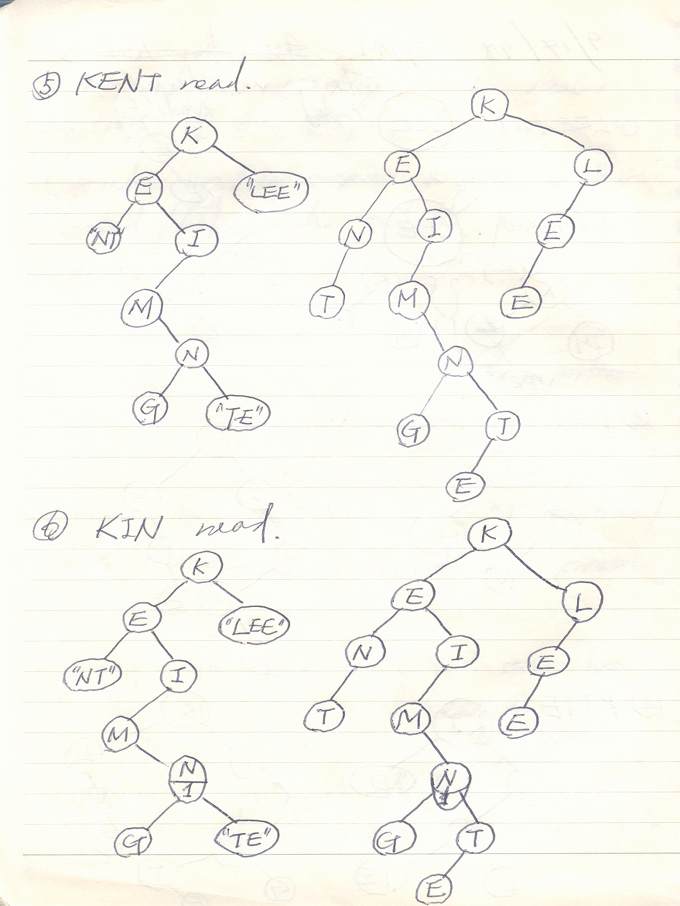 ⑤ KENT read.
K
K
E "LEE"
E L
"NT" I
N I E
M
T M E
N
N
G "TE"
G T
E
⑥ KIN read.
K
K
E "LEE"
E L
"NT" I
N I E
M
T M E
N
1
N
1
G "TE"
G T
E